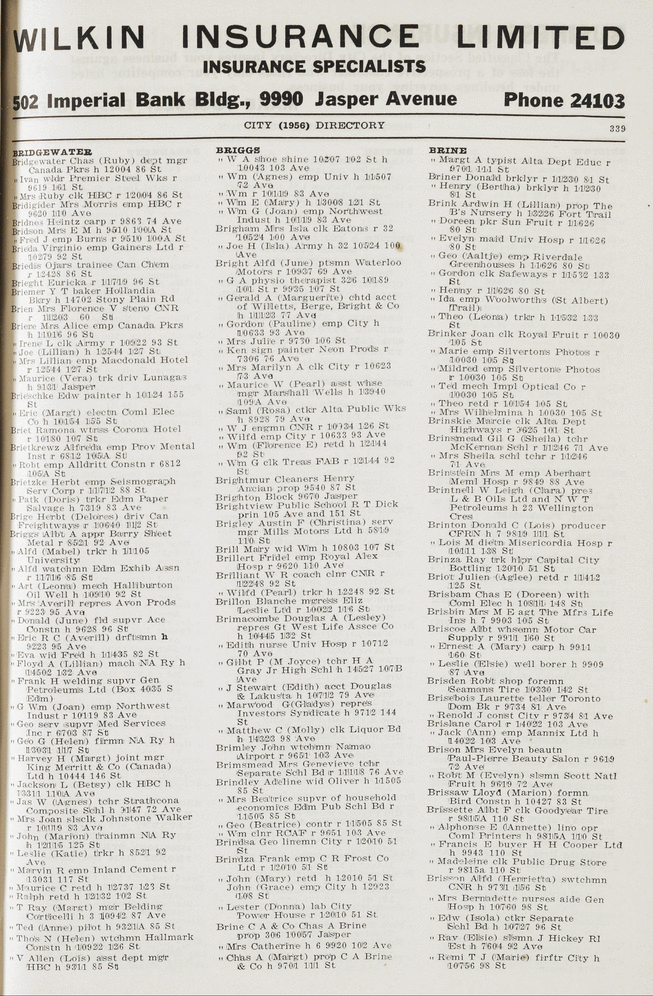 WILKIN INSURANCE LIMITED
INSURANCE SPECIALISTS
502 Imperial Bank Bldg., 9990 Jasper Avenue Phone 24103
CITY (1956) DIRECTORY 339
BRIDGEWATER
Bridgewater Chas (Ruby) dept mgr
Canada Pkrs h 12004 86 St
" Ivan wldr Premier Steel Wks r
9619 161 St
" Mrs Ruby clk HBC r 12004 86 St
Bridigider Mrs Morris emp HBC r
9620 110 Ave
Bridnes Heintz carp r 9863 74 Ave
Bridson Mrs E M h 9510 100A St
" Fred J emp Burns r 9510 100A St
Brieda Virginio emp Gainers Ltd r
10279 92 St
Briedis Ojars trainee Can Chem
r 12428 86 St
Brieght Euricka r 11719 96 St
Briemer Y T baker Hollandia
Bkry h 14702 Stony Plain Rd
Brien Mrs Florence V steno CNR
r 11203 60 St
Briere Mrs Alice emp Canada Pkrs
h 11016 96 St
" Irene L clk Army r 10922 93 St
" Joe (Lillian) h 12544 127 St
" Mrs Lillian emp Macdonald Hotel
r 12544 127 St
" Maurice (Vera) trk driv Lunagas
h 9131 Jasper
Brieschke Edw painter h 10124 155
St
" Eric (Margt) electn Coml Elec
Co h 10154 155 St
Briet Ramona wtrss Corona Hotel
r 10180 107 St
Brietkrewz Alfreda emp Prov Mental
Inst r 6812 105A St
" Robt emp Alldritt Constn r 6812
105A St
Brietzke Herbt emp Seismograph
Serv Corp r 11712 88 St
" Patk (Doris) trkr Edm Paper
Salvage h 7319 83 Ave
Brige Herbt (Delores) driv Can
Freightways r 10640 112 St
Briggs Albt A appr Barry Sheet
Metal r 8521 92 Ave
" Alfd (Mabel) trkr h 11105
University
" Alfd watchman Edm Exhib Assn
r 11716 85 St
" Art (Leona) mech Halliburton
Oil Well h 10910 92 St
" Mrs Averill repres Avon Prods
r 9223 95 Ave
" Donald (June) fld supvr Ace
Constn h 9628 96 St
" Eric R C (Averill) drftsmn h
9223 95 Ave
" Eva wid Fred h 11435 82 St
" Floyd A (Lillian) mach NA Ry h
14502 132 Ave
" Frank H welding supvr Gen
Petroleums Ltd (Box 4035 S
Edm)
" G Wm (Joan) emp Northwest
Indust r 10119 83 Ave
" Geo serv supvr Med Services
Inc r 6703 87 St
" Geo G (Helen) firmn NA Ry h
13031 117 St
" Harvey H (Margt) joint mgr
King Merritt & Co (Canada)
Ltd h 10444 146 St
" Jackson L (Betsy) clk HBC h
13311 110A Ave
" Jas W (Agnes) tchr Strathcona
Composite Schl h 9147 72 Ave
" Mrs Joan slsclk Johnstone Walker
r 10119 83 Ave
" John (Marion) trainmn NA Ry
h 12116 125 St
" Leslie (Katie) trkr h 8521 92
Ave
" Marvin R emp Inland Cement r
13031 117 St
" Maurice C retd h 12737 123 St
" Ralph retd h 12132 102 St
" T Ray (Margt) mgr Belding
Corticelli h 3 10942 87 Ave
" Ted (Anne) pilot h 9321A 85 St
" Thos N (Helen) wtchmn Hallmark
Constn h 10922 126 St
" V Allen (Lois) asst dept mgr
HBC h 9311 85 St
BRIGGS
" W A shoe shine 10207 102 St h
10043 103 Ave
" Wm (Agnes) emp Univ h 11507
72 Ave
" Wm r 10119 83 Ave
" Wm E (Mary) h 13008 121 St
" Wm G (Joan) emp Northwest
Indust h 10119 83 Ave
Brigham Mrs Isla clk Eatons r 32
10524 100 Ave
" Joe H (Isla) Army h 32 10524 100
Ave
Bright Alfd (June) ptsmn Waterloo
Motors r 10937 69 Ave
" G A physio therapist 326 10189
101 St r 9935 107 St
" Gerald A (Marguerite) chtd acct
of Willetts, Berge, Bright & Co
h 11123 77 Ave
" Gordon (Pauline) emp City h
10633 93 Ave
" Mrs Julie r 9730 106 St
" Ken sign painter Neon Prods r
7306 76 Ave
" Mrs Marilyn A clk City r 10623
73 Ave
" Maurice W (Pearl) asst whse
mgr Marshall Wells h 13940
109A Ave
" Saml (Rosa) ctkr Alta Public Wks
h 8928 79 Ave
" W J engmn CNR r 10934 126 St
" Wilfd emp City r 10633 93 Ave
" Wm (Florence E) retd h 12144
92 St
" Wm G clk Treas FAB r 12144 92
St
Brightmur Cleaners Henry
Ancian prop 9540 87 St
Brighton Block 9670 Jasper
Brightview Public School R T Dick
prin 105 Ave and 151 St
Brigley Austin F (Christina) serv
mgr Mills Motors Ltd h 5819
110 St
Brill Mary wid Wm h 10803 107 St
Brillert Fridel emp Royal Alex
Hosp r 9620 110 Ave
Brilliant W R coach clnr CNR r
12248 92 St
" Wilfd (Pearl) trkr h 12248 92 St
Brillon Blanche mgress Eliz
Leslie Ltd r 10022 116 St
Brimacombe Douglas A (Lesley)
repres Gt West Life Assce Co
h 10445 132 St
" Edith nurse Univ Hosp r 10712
70 Ave
" Gilbt P (M Joyce) tchr H A
Gray Jr High Schl h 14527 107B
Ave
" J Stewart (Edith) acct Douglas
& Lakusta h 10712 79 Ave
" Marwood G(Gladys) repres
Investors Syndicate h 9712 144
St
" Matthew C (Molly) clk Liquor Bd
h 14323 98 Ave
Brimley John wtchmn Namao
Airport r 9651 103 Ave
Brimsmead Mrs Genevieve tchr
Separate Schl Bd r 11118 76 Ave
Brindley Adeline wid Oliver h 11505
85 St
" Mrs Beatrice supvr of household
economics Edm Pub Schl Bd r
11505 85 St
" Geo (Beatrice) contr r 11505 85 St
" Wm clnr RCAF r 9651 103 Ave
Brindsa Geo linemn City r 12010 51
St
Brindza Frank emp C R Frost Co
Ltd r 12010 51 St
" John (Mary) retd h 12010 51 St
John (Grace) emp City h 12923
108 St
" Lester (Donna) lab City
Power House r 12010 51 St
Brine C A & Co Chas A Brine
prop 306 10057 Jasper
" Mrs Catherine h 6 9920 102 Ave
" Chas A (Margt) prop C A Brine
& Co h 9701 111 St
BRINE
" Margt A typist Alta Dept Educ r
9701 111 St
Briner Donald brklyr r 11230 81 St
" Henry (Bertha) brklyr h 11230
81 St
Brink Ardwin H (Lillian) prop The
B's Nursery h 13226 Fort Trail
" Doreen pkr Sun Fruit r 11626
80 St
" Evelyn maid Univ Hosp r 11626
80 St
" Geo (Aaltje) emp Riverdale
Greenhouses h 11626 80 St
" Gordon clk Safeways r 11532 133
St
" Henny r 11626 80 St
" Ida emp Woolworths (St Albert)
Trail)
" Theo (Leona) trkr h 11532 133
St
Brinker Joan clk Royal Fruit r 10030
105 St
" Marie emp Silvertone Photos r
10030 105 St
" Mildred emp Silvertone Photos
r 10030 105 St
" Ted mech Impl Optical Co r
10030 105 St
" Theo retd r 10154 105 St
" Mrs Wilhelmina h 10030 105 St
Brinskie Marcie clk Alta Dept
Highways r 9625 101 St
Brinsmead Gil G (Sheila) tchr
McKernan Schl r 11246 71 Ave
" Mrs Sheila schl tchr r 11246
71 Ave
Brinstein Mrs M emp Aberhart
Meml Hosp r 9849 88 Ave
Brintnell W Leigh (Clara) pres
L & B Oils Ltd and N W T
Petroleums h 23 Wellington
Cres
Brinton Donald C (Lois) producer
CFRN h 7 9819 111 St
" Lois M dietn Misericordia Hosp r
10111 138 St
Brinza Ray trk hlpr Capital City
Bottling 12010 51 St
Briot Julien (Aglee) retd r 11412
125 St
Brisbam Chas E (Doreen) with
Coml Elec h 10811 148 St
Brisbin Mrs M E agt The Mfrs Life
Ins h 7 9902 105 St
Briscoe Albt whsemn Motor Car
Supply r 9911 160 St
" Ernest A (Mary) carp h 9911
160 St
" Leslie (Elsie) well borer h 9909
87 Ave
Brisden Robt shop foremn
Seamans Tire 10330 142 St
Brisebois Laurette teller Toronto
Dom Bk r 9734 81 Ave
" Renold J const City r 9734 81 Ave
Brislane Carol r 14022 103 Ave
" Jack (Ann) emp Mannix Ltd h
14022 103 Ave
Brison Mrs Evelyn beautn
Paul-Pierre Beauty Salon r 9619
72 Ave
" Robt M (Evelyn) slsmn Scott Natl
Fruit h 9619 72 Ave
Brissaw Lloyd (Marion) formn
Bird Constn h 10427 83 St
Brissette Albt F clk Goodyear Tire
r 9815A 110 St
" Alphonse E (Annette) lino opr
Coml Printers h 9815A 110 St
" Francis E buyer H H Cooper Ltd
h 9943 110 St
" Madeleine clk Public Drug Store
r 9815a 110 St
Brisson Alfd (Henrietta) swtchmn
CNR h 9731 156 St
" Mrs Bernadette nurses aide Gen
Hosp h 10760 98 St
" Edw (Isola) ctkr Separate
Schl Bd h 10727 96 St
" Ray (Elsie) slsmn J Hickey Rl
Est h 7604 92 Ave
" Remi T J (Marie) firftr City h
10756 98 St